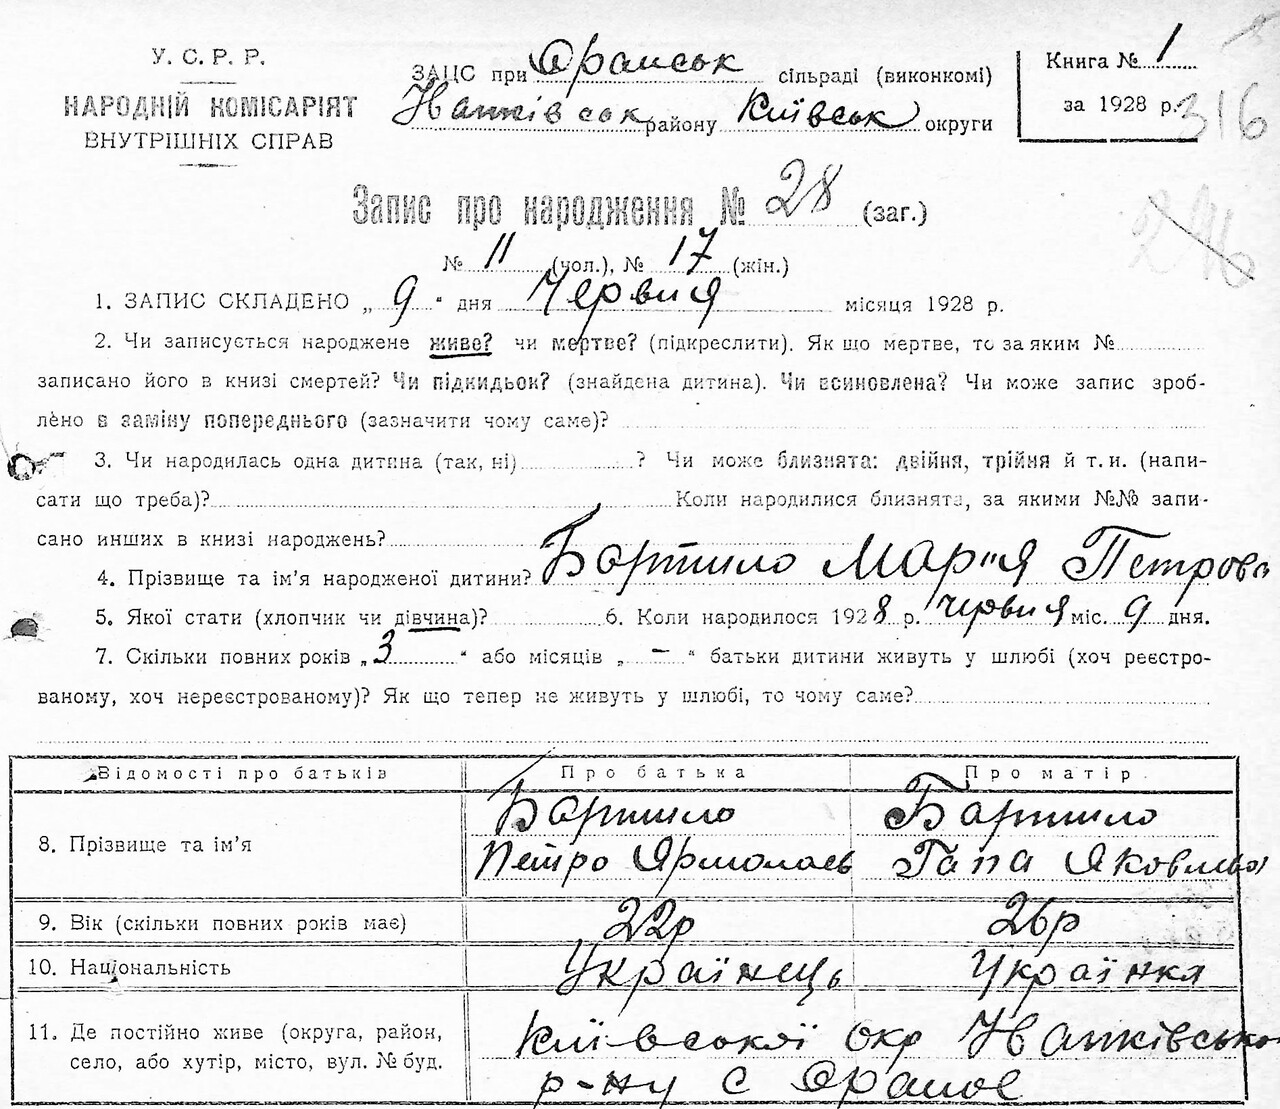 У. С. Р. Р.
НАРОДНІЙ КОМІСАРІЯТ
ВНУТРІШНІХ СПРАВ
ЗАЦС при Оранськ сільраді (виконкомі)
Іванківськ району Київськ округи
Книга № 1
за 1928 р.
316
Запис про народження № 28 (заг.)
№ 11 (чол.), № 17 (жін.)
1. ЗАПИС СКЛАДЕНО „ 9 “ дня Червня місяця 1928 р.
2. Чи записується народжене живе? чи мертве? (підкреслити). Як що мертве, то за яким №
записано його в книзі смертей? Чи підкидьок? (знайдена дитина). Чи всиновлена? Чи може запис зроб-
лено в заміну попереднього (зазначити чому саме)?
3. Чи народилась одна дитина (так, ні) ? Чи може близнята: двійня, трійня й т. и. (напи-
сати що треба)? Коли народилися близнята, за якими №№ запи-
сано инших в книзі народжень?
4. Прізвище та ім’я народженої дитини? Бортило Марія Петрова
5. Якої стати (хлопчик чи дівчина)? 6. Коли народилося 1928 р. червня міс. 9 дня.
7. Скільки повних років „ 3 “ або місяців „ – “ батьки дитини живуть у шлюбі (хоч реєстро-
ваному, хоч нереєстрованому)? Як що тепер не живуть у шлюбі, то чому саме?
Відомості про батьків Про батька Про матір
8. Прізвище та ім’я Бортило Бартило
Петро Ярмолаєв Гапа Яковль
9. Вік (скільки повних років має) 22р 26р
10. Національність Українець Українкя
11. Де постійно живе (округа, район,
село, або хутір, місто, вул. № буд.
Київської окр Іванківсько
р-ну с Ораное